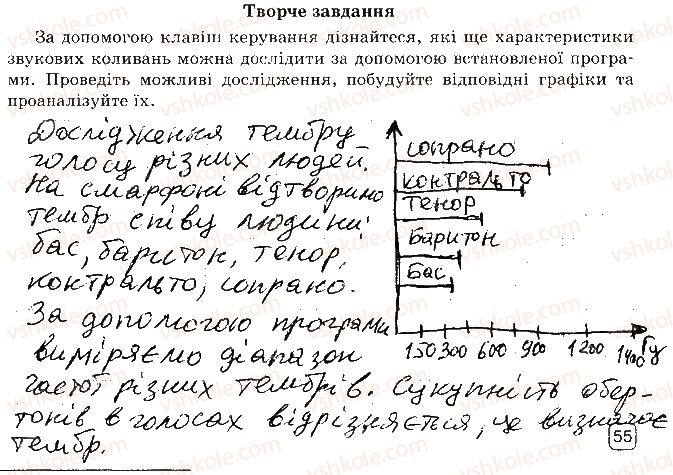 Творче завдання
За допомогою клавіш керування дізнайтеся, які ще характеристики
звукових коливань можна дослідити за допомогою встановленої програ-
ми. Проведіть можливі дослідження, побудуйте відповідні графіки та
проаналізуйте їх.
Дослідження тембру
голосу різних людей.
На смарфоні відтворимо
тембр співу людини:
бас, баритон, тенор,
контральто, сопрано.
За допомогою програми
виміряємо діапазон
частот різних тембрів. Сукупність обер-
тонів в голосах відрізняється, це визначає
тембр.
сопрано
контральто
Тенор
Баритон
Бас
150 300 600 900 1200 1400 Гц
55
vshkole.com